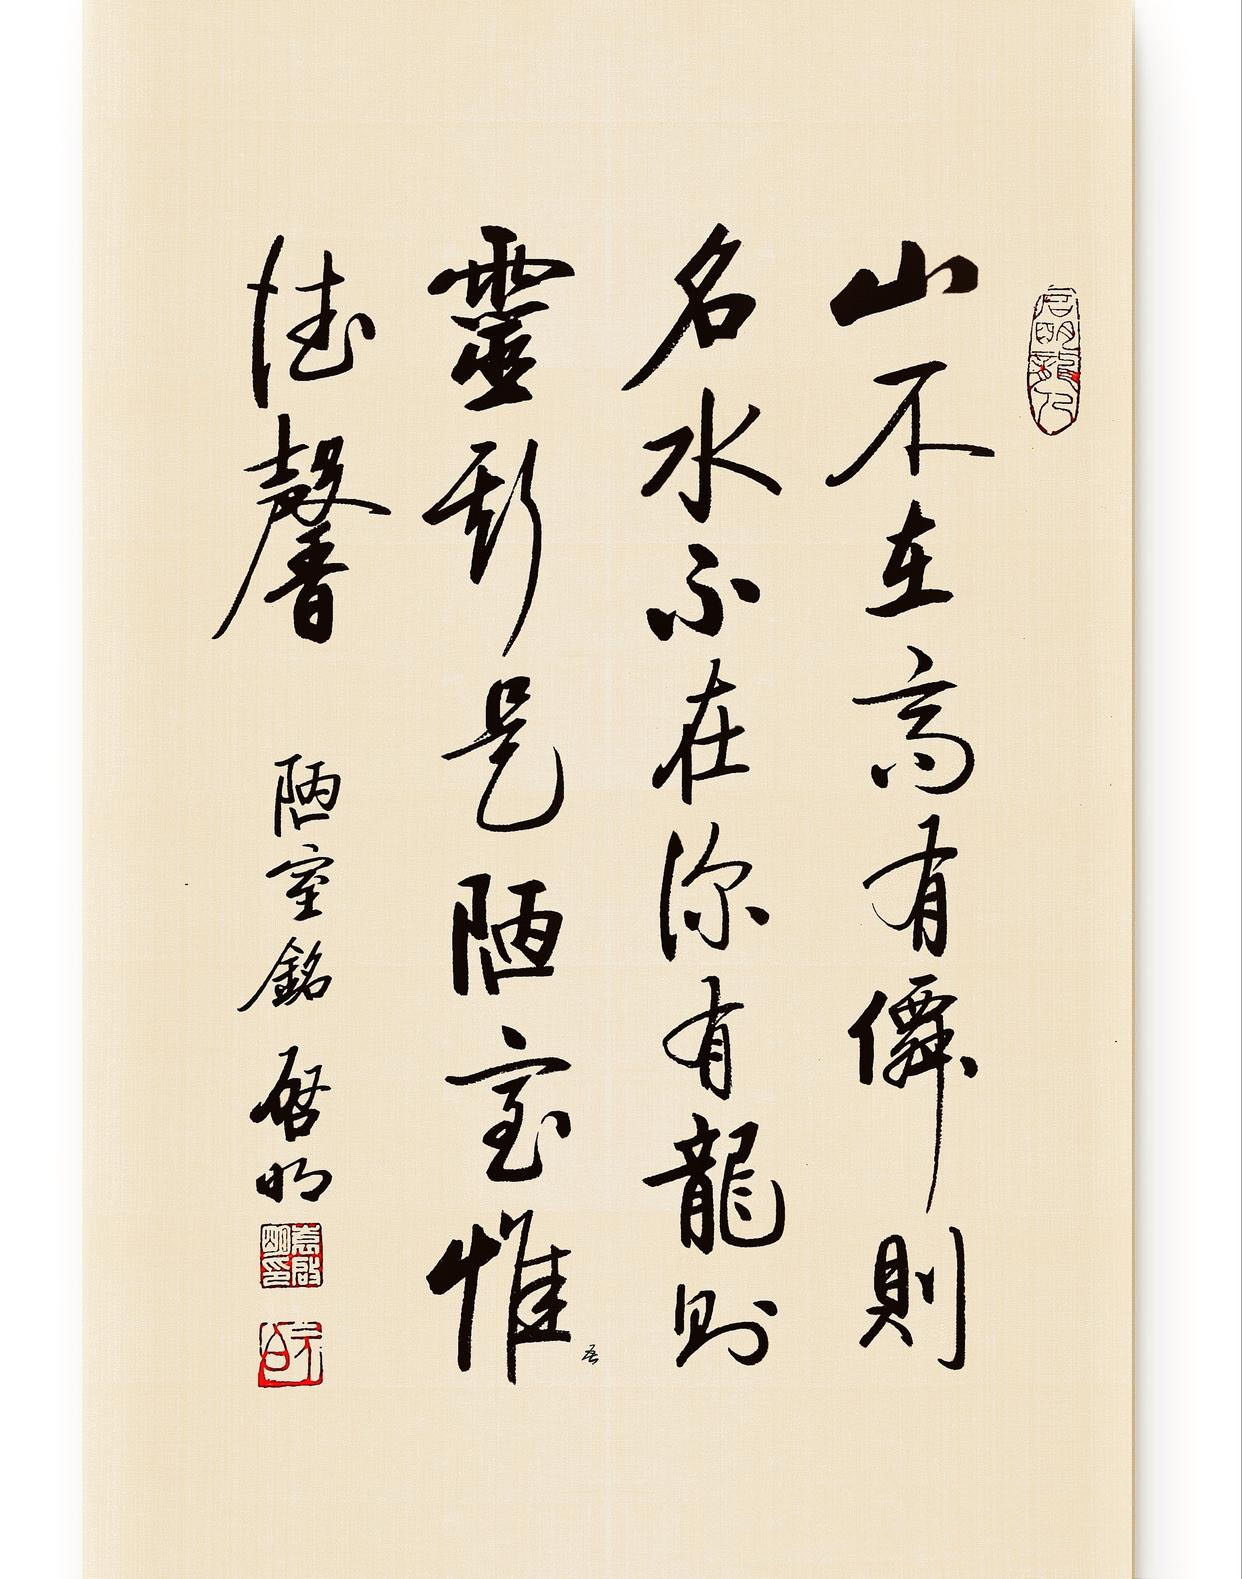 山不在高有僊則
名水不在深有龍則
靈斯是陋室惟
吾
徳馨
陋室銘
啓明